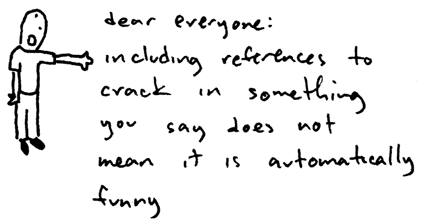 dear everyone:
including references to
crack in something
you say does not
mean it is automatically
funny